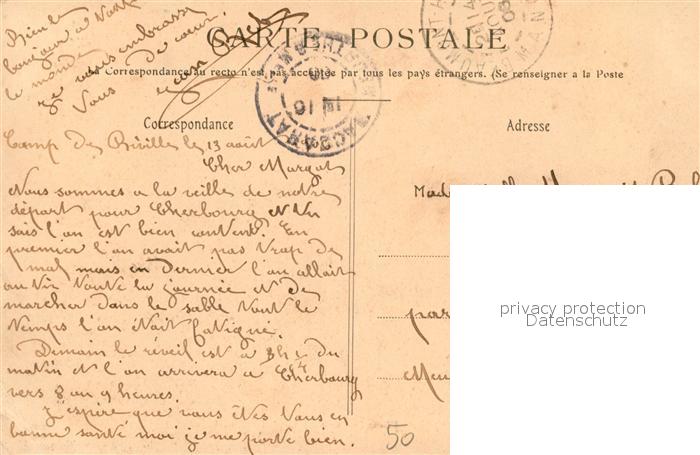 Bien le
bonjour à toute
le monde
je vous embrasse
tous de cœur.
CARTE POSTALE
La Correspondance au recto n'est pas acceptée par tous les pays étrangers. (Se renseigner à la Poste
Correspondance
Adresse
Camp de Biville les 13 août
Cher Margot
Nous sommes a la veille de notre
départ pour Cherbourg et tu
sais l'on est bien content. En
premier l'on avait pas trop de
mal mais en dernier l'on allait
au tir toute la journée et de
marcher dans le sable tout le
temps l'on était fatigué.
Demain le réveil est à 3h ½ du
matin et l'on arrivera à Cherbourg
vers 8 ou 9 heures.
J'espère que vous êtes tous en
bonne santé moi je me porte bien.
BACCARAT
Made
par
Meu
50
privacy protection
Datenschutz